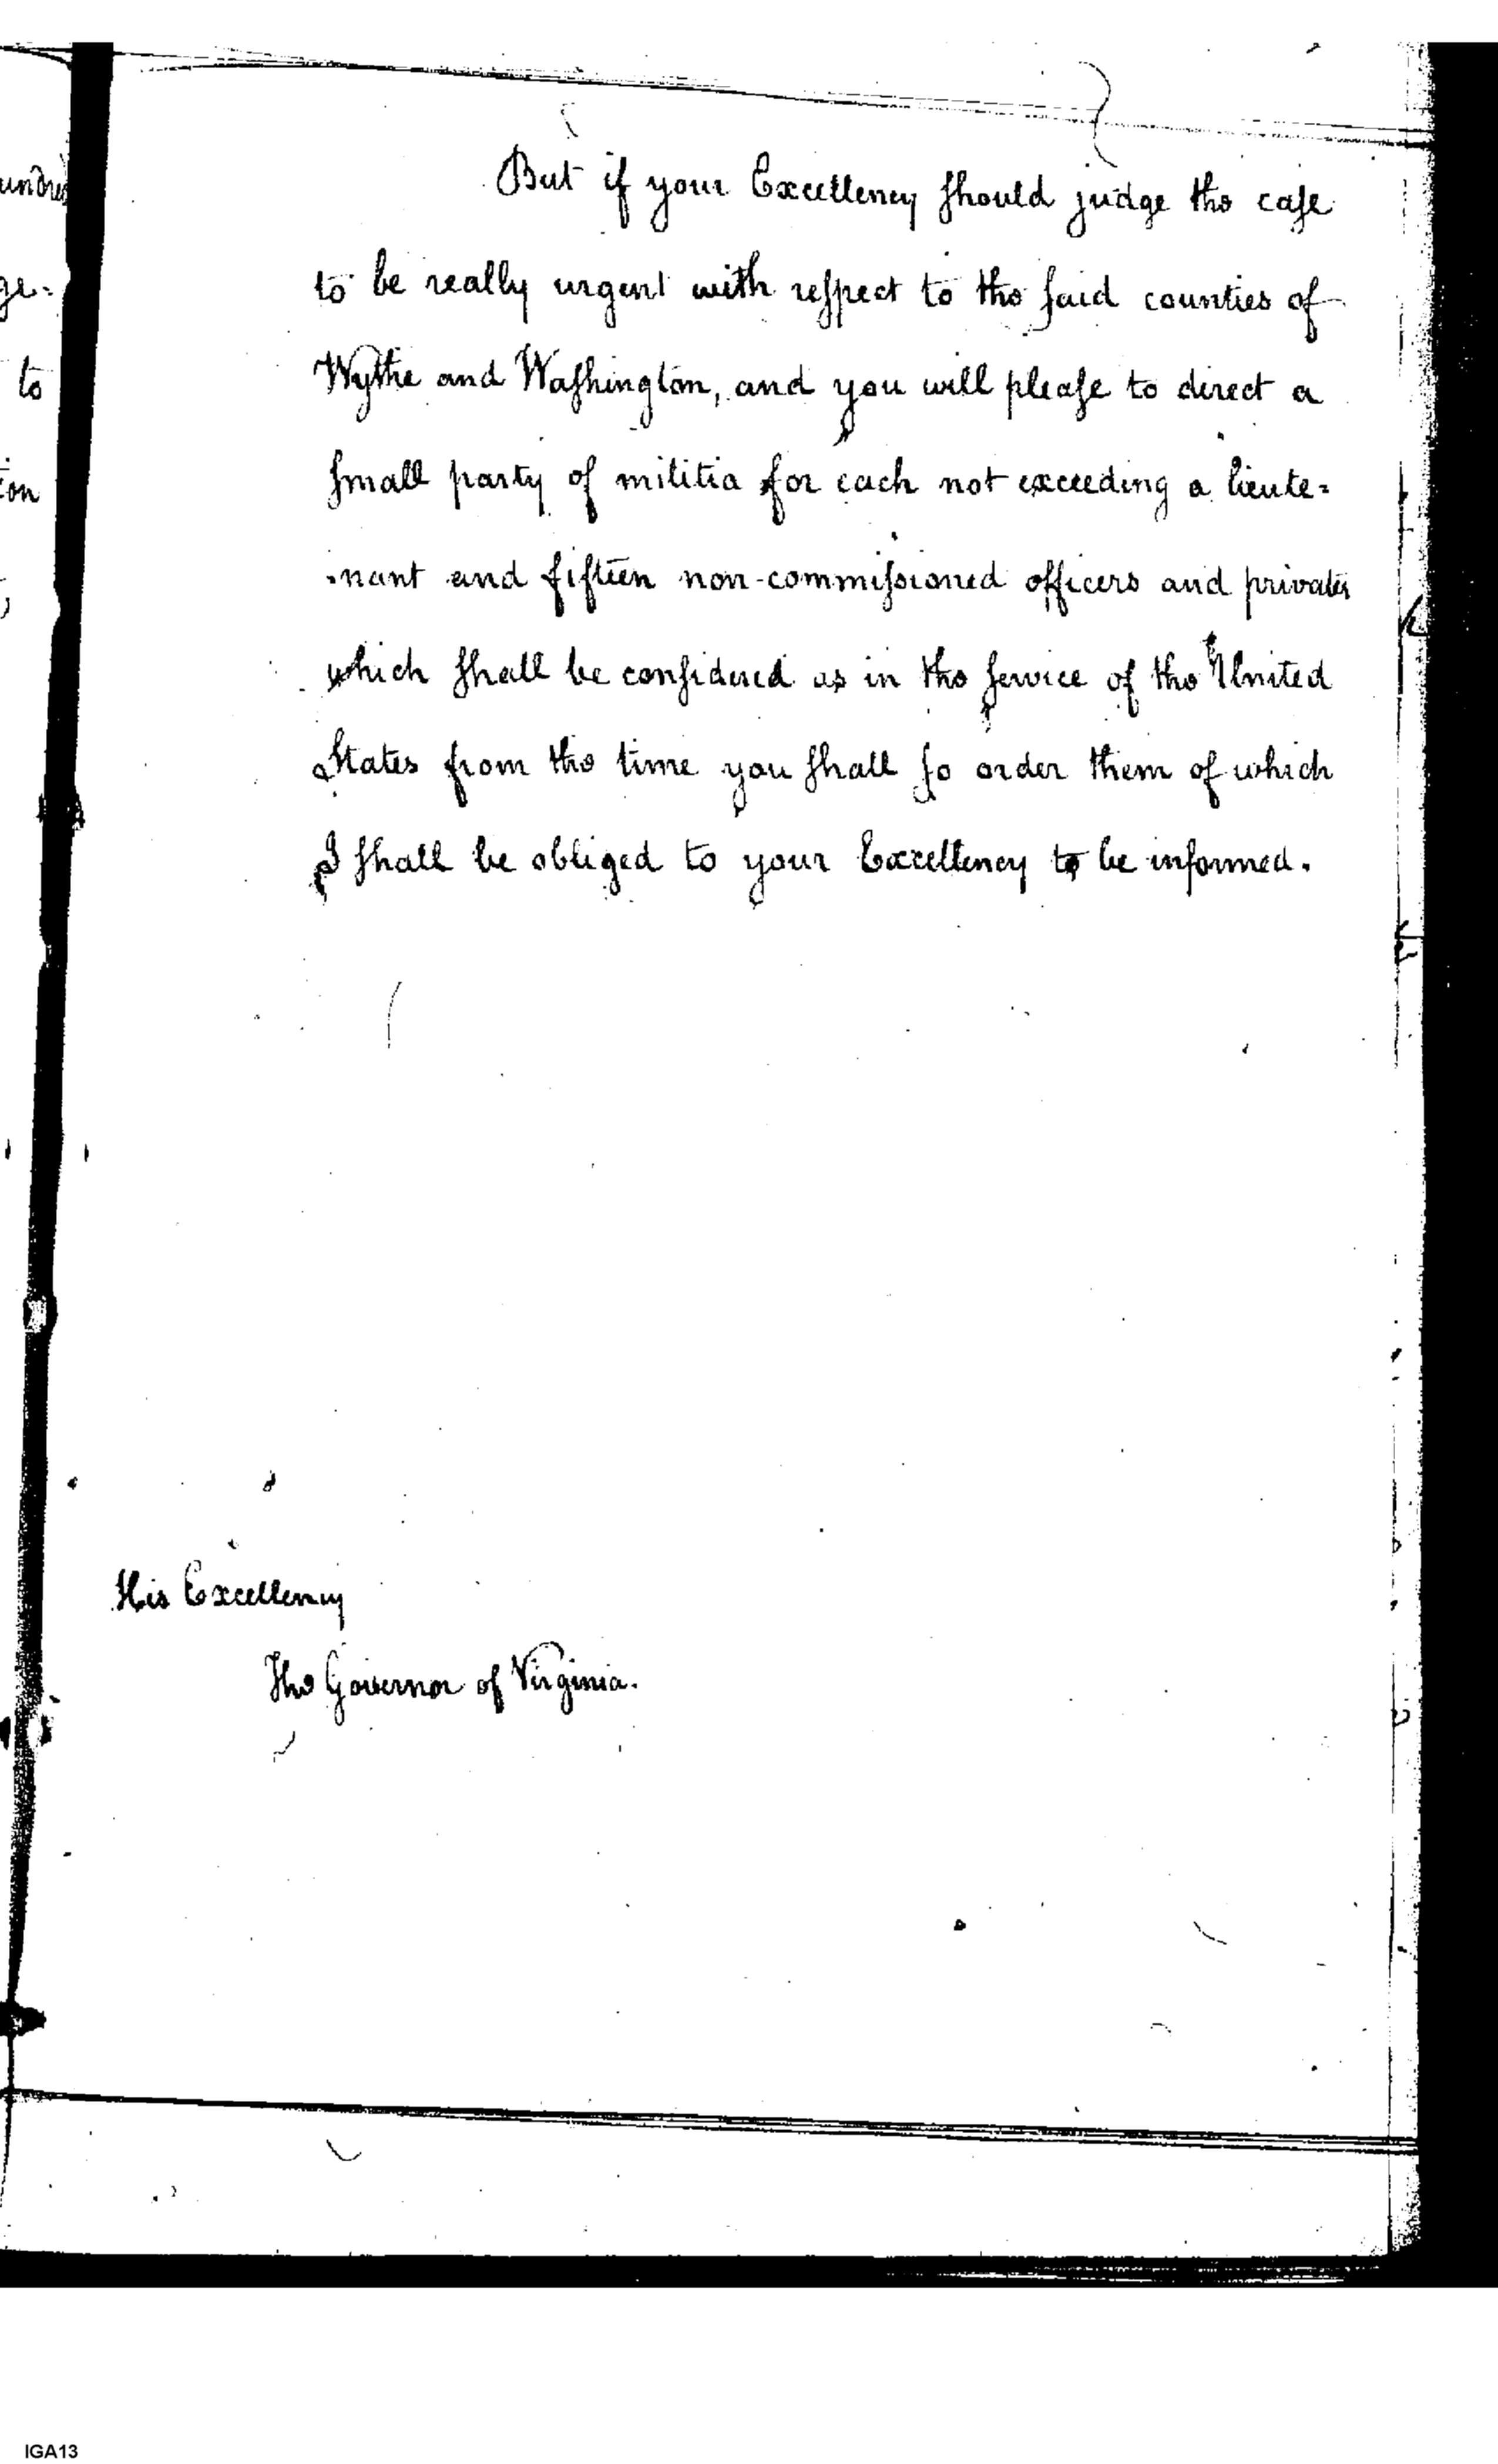 But if your Excellency ſhould judge the caſe
to be really urgent with reſpect to the ſaid counties of
Wythe and Waſhington, and you will pleaſe to direct a
ſmall party of militia for each not exceeding a lieute=
nant and fifteen non-commiſsioned officers and privates
which ſhall be conſidered as in the ſervice of the United
States from the time you ſhall ſo order them of which
I ſhall be obliged to your Excellency to be informed.
His Excellency
The Governor of Virginia.
ge=
to
on
IGA13